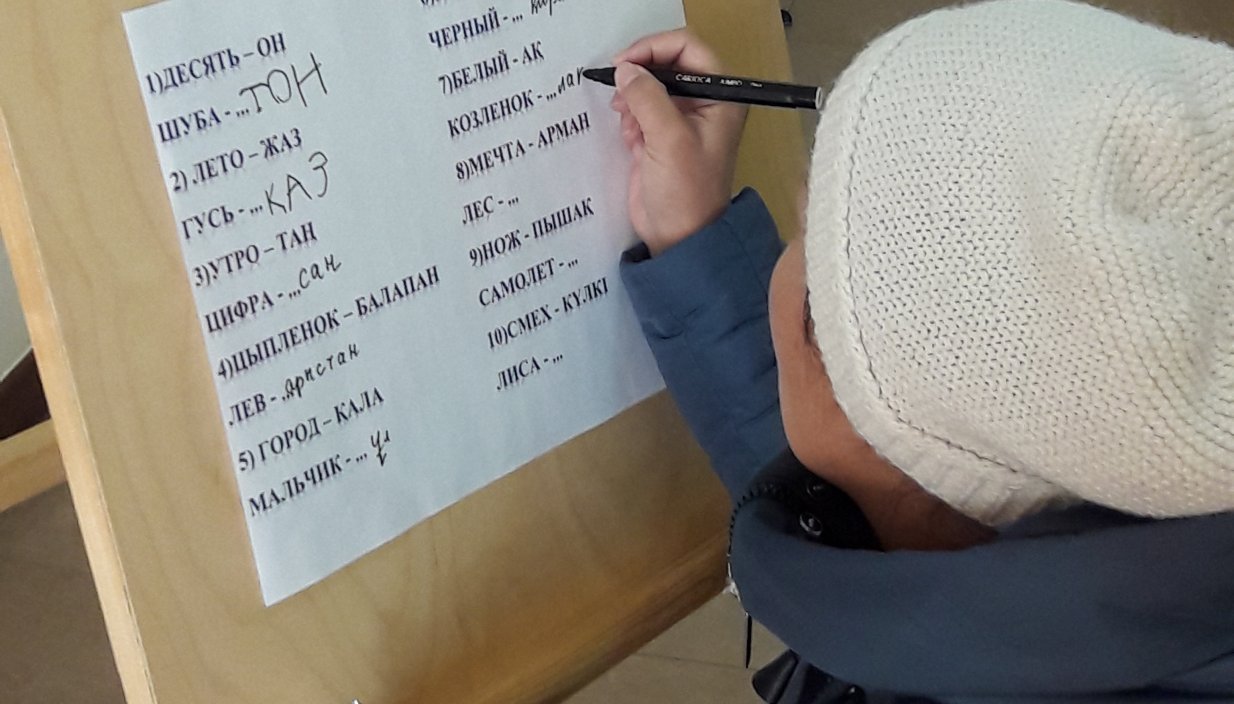 1)ДЕСЯТЬ – ОН
ШУБА - ...ТОН
2) ЛЕТО – ЖАЗ
ГУСЬ - ...КАЗ
3)УТРО – ТАН
ЦИФРА - ...сан
4)ЦЫПЛЕНОК – БАЛАПАН
ЛЕВ - ..арыстан
5) ГОРОД – КАЛА
МАЛЬЧИК - ... ұл
ЧЕРНЫЙ - ...
7)БЕЛЫЙ - АҚ
КОЗЛЕНОК - ...лақ
8)МЕЧТА - АРМАН
ЛЕС - ...
9)НОЖ - ПЫШАҚ
САМОЛЕТ - ...
10)СМЕХ - КҮЛКІ
ЛИСА - ...
CARIOCA JUMBO